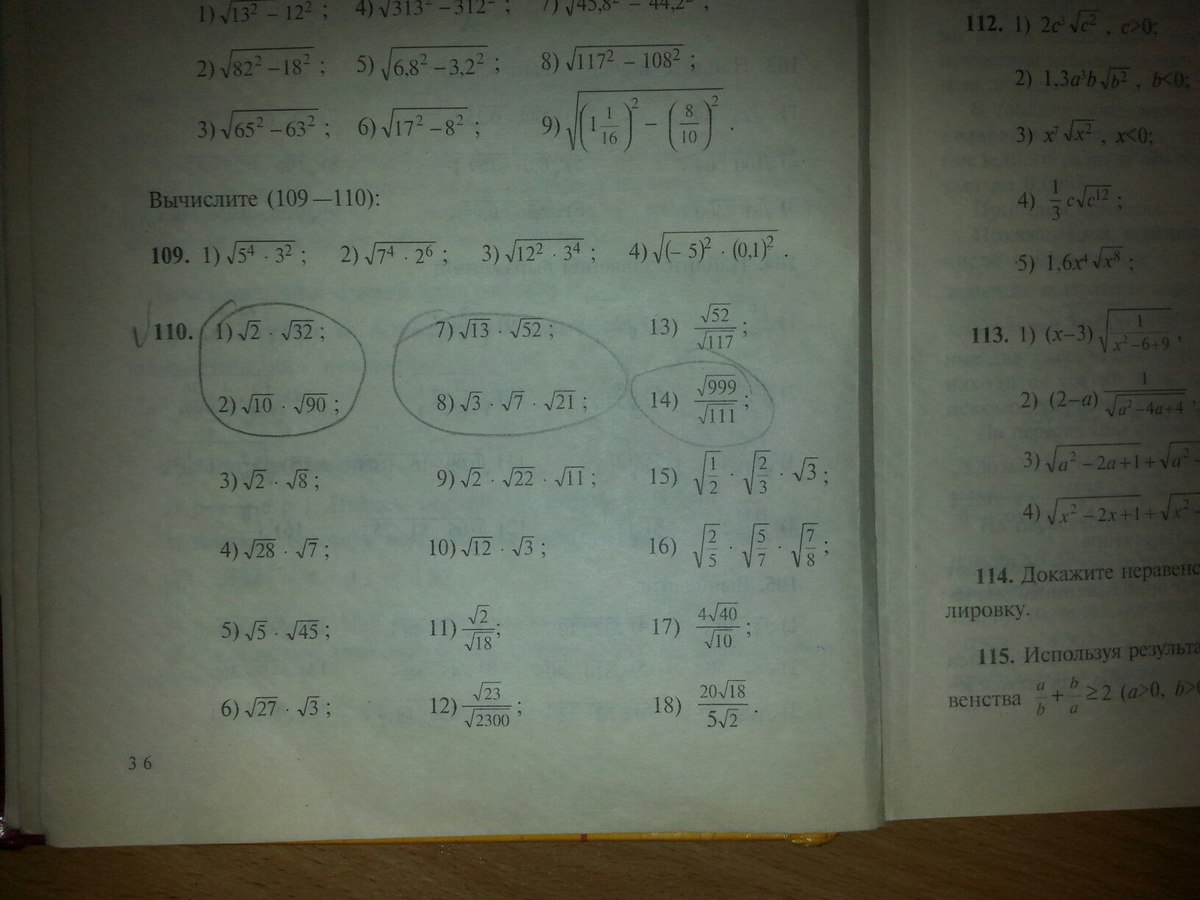 1) √13² − 12² ; 4) √313² − 312² ; 7) √45,8² − 44,2² ;
2) √82² − 18² ; 5) √6,8² − 3,2² ; 8) √117² − 108² ;
3) √65² − 63² ; 6) √17² − 8² ; 9) √(1 1/16)² − (8/10)² .
Вычислите (109—110):
109. 1) √5⁴ · 3² ; 2) √7⁴ · 2⁶ ; 3) √12² · 3⁴ ; 4) √(− 5)² · (0,1)² .
110. 1) √2 · √32 ; 7) √13 · √52 ; 13) √52/√117 ;
2) √10 · √90 ; 8) √3 · √7 · √21 ; 14) √999/√111 ;
3) √2 · √8 ; 9) √2 · √22 · √11 ; 15) √1/2 · √2/3 · √3 ;
4) √28 · √7 ; 10) √12 · √3 ; 16) √2/5 · √5/7 · √7/8 ;
5) √5 · √45 ; 11) √2/√18 ; 17) 4√40/√10 ;
6) √27 · √3 ; 12) √23/√2300 ; 18) 20√18/5√2 .
36
112. 1) 2c³√c² , c>0;
2) 1,3a³b√b² , b<0;
3) x⁷√x² , x<0;
4) 1/3 c√c¹² ;
5) 1,6x⁴√x⁸ ;
113. 1) (x−3)√1/x²−6+9 ,
2) (2−a) 1/√a²−4a+4 ,
3) √a² − 2a+1 + √a²
4) √x² − 2x+1 + √x²
114. Докажите
лировку.
115. Используя
венства a/b + b/a ≥ 2 (a>0,